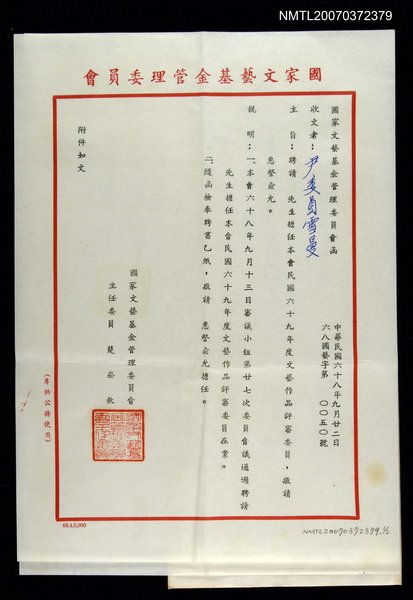 NMTL20070372379
國家文藝基金管理委員會
國家文藝基金管理委員會函
中華民國六十八年九月廿二日
六八國藝字第　〇〇五〇號
收文者：尹委員雪曼
主　旨：聘請　先生擔任本會民國六十九年度文藝作品評審委員，敬請
惠詧俞允。
說　明：一、本會六十八年九月十三日審議小組第廿七次委員會議通過聘請
先生擔任本會民國六十九年度文藝作品評審委員在案。
二、隨函檢奉聘書乙紙，敬請　惠詧俞允擔任。
附件如文
國家文藝基金管理委員會
主任委員　楚崧秋
（專供公務使用）
68.4.5,000
NMTL20070372379.½